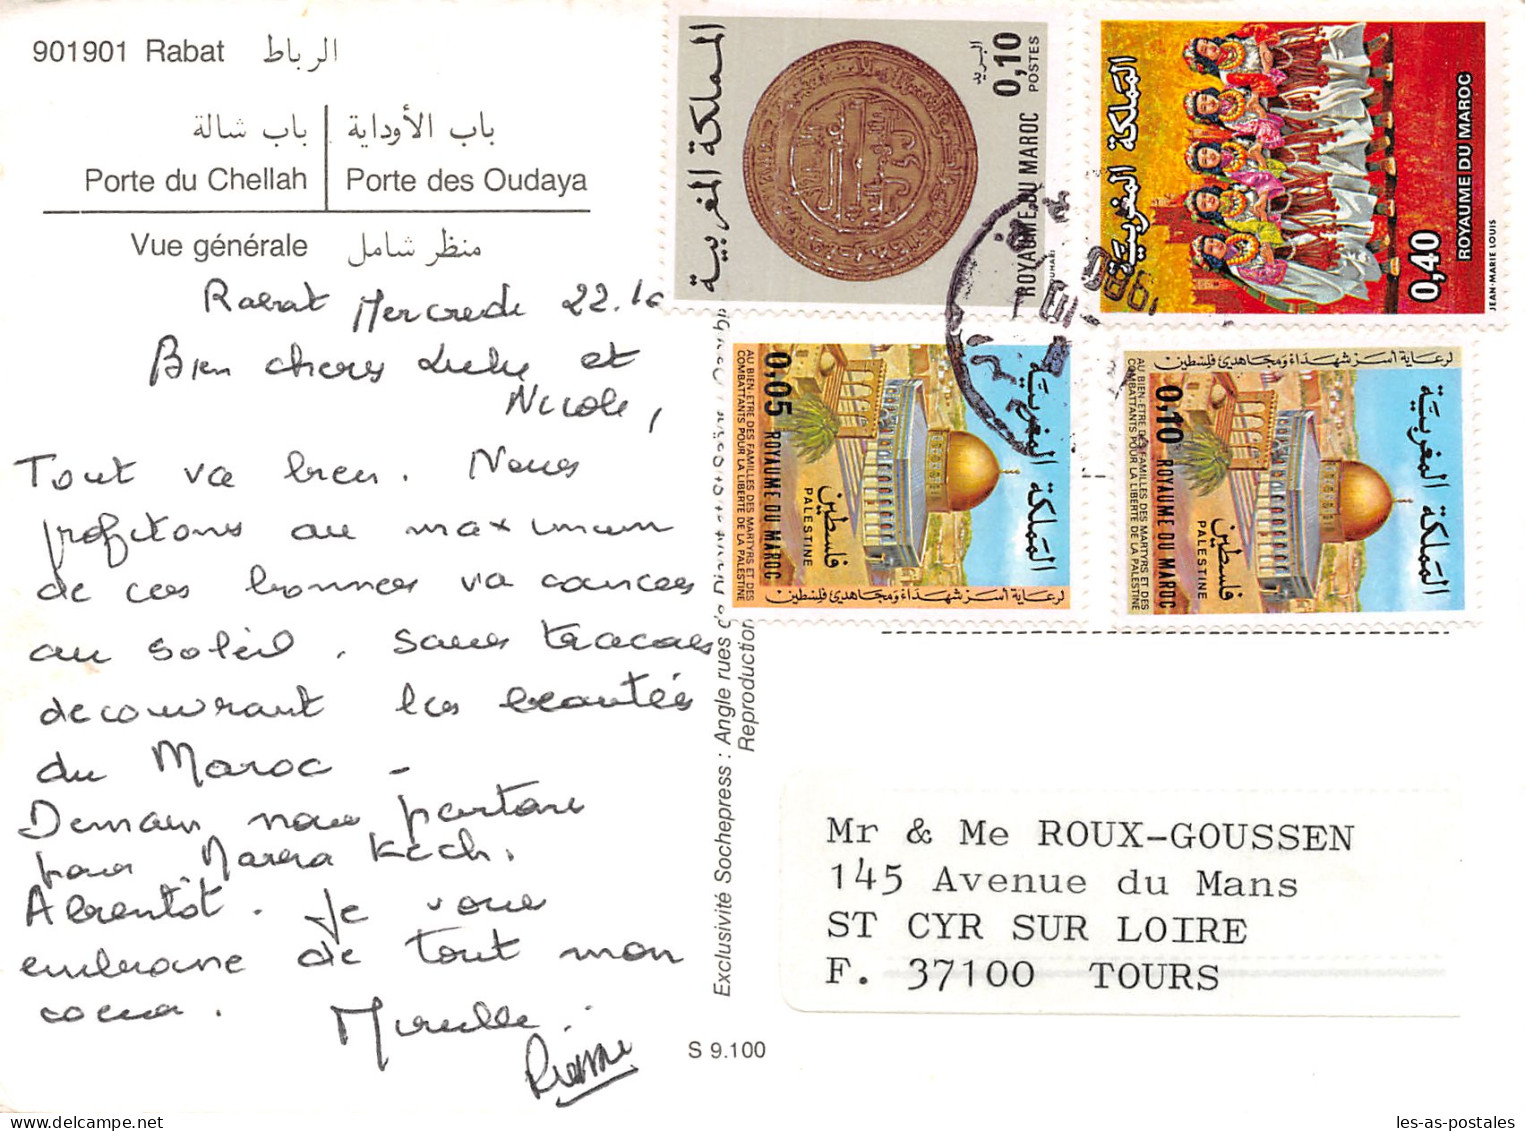 901901 Rabat الرباط
باب شالة
Porte du Chellah
باب الأوداية
Porte des Oudaya
Vue générale منظر شامل
Rabat Mercredi 22.10
Bien chers Lulu et
Nicole,
Tout va bien. Nous
profitons au maximum
de ces bonnes vacances
au soleil. sans tracas
decouvrant les beautés
du Maroc -
Demain nous partons
pour Marrakech.
A bientôt. Je vous
embrasse de tout mon
coeur. Mireille.
Pierre
المملكة المغربية
البريد
0,10
POSTES
ROYAUME DU MAROC
المملكة المغربية
0,40
ROYAUME DU MAROC
JEAN-MARIE LOUIS
المملكة المغربية
0,05 ROYAUME DU MAROC
AU BIEN-ETRE DES FAMILLES DES MARTYRS ET DES
COMBATTANTS POUR LA LIBERTE DE LA PALESTINE
فلسطين
PALESTINE
لرعاية أسر شهداء ومجاهدي فلسطين
لرعاية أسر شهداء ومجاهدي فلسطين
المملكة المغربية
0,10 ROYAUME DU MAROC
AU BIEN-ETRE DES FAMILLES DES MARTYRS ET DES
COMBATTANTS POUR LA LIBERTE DE LA PALESTINE
فلسطين
PALESTINE
1986
Exclusivité Sochepress : Angle rues
Reproduction
S 9.100
Mr & Me ROUX-GOUSSEN
145 Avenue du Mans
ST CYR SUR LOIRE
F. 37100 TOURS
les-as-postales